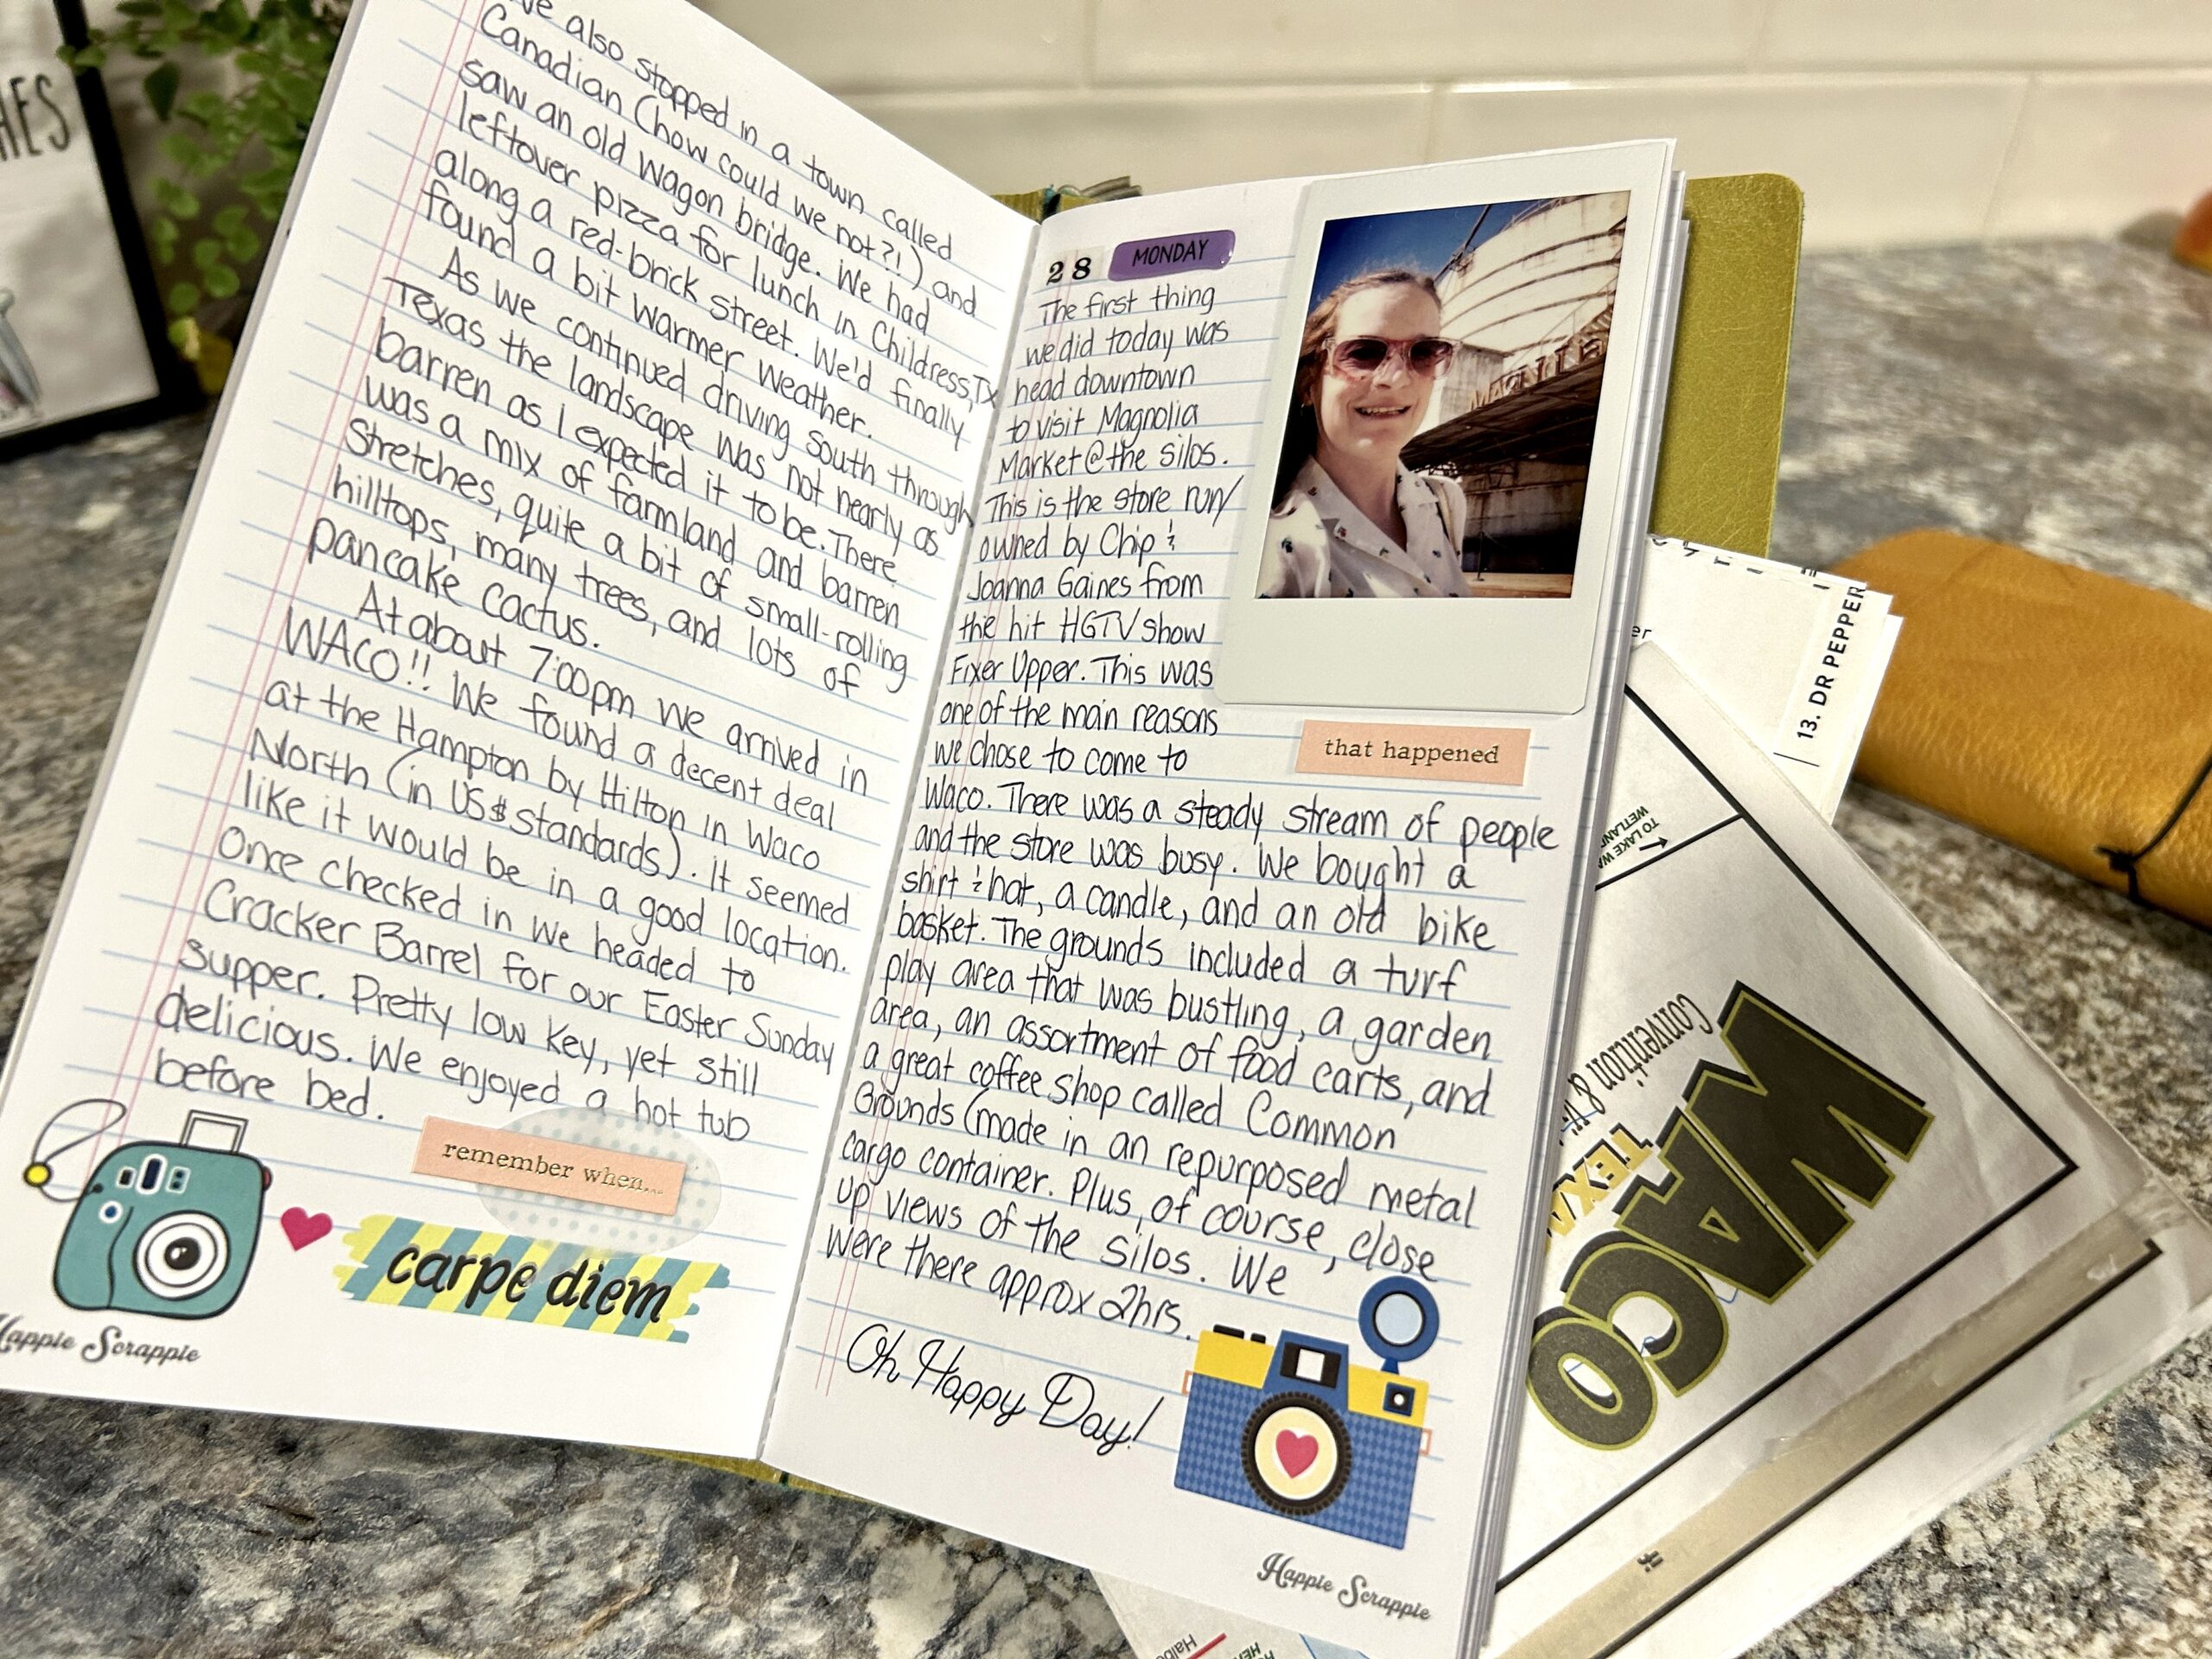 we also stopped in a town called
Canadian (how could we not?!) and
saw an old wagon bridge. We had
leftover pizza for lunch in Childress, Tx
along a red-brick street. We'd finally
found a bit warmer weather.
As we continued driving south through
Texas the landscape was not nearly as
barren as I expected it to be. There
was a mix of farmland and barren
stretches, quite a bit of small-rolling
hilltops, many trees, and lots of
pancake cactus.
At about 7:00pm we arrived in
WACO!! We found a decent deal
at the Hampton by Hilton in Waco
North (in US$ standards). It seemed
like it would be in a good location.
Once checked in we headed to
Cracker Barrel for our Easter Sunday
supper. Pretty low key, yet still
delicious. We enjoyed a hot tub
before bed.
remember when...
carpe diem
Happie Scrappie
28 MONDAY
The first thing
we did today was
head downtown
to visit Magnolia
Market @ the silos.
This is the store run/
owned by Chip &
Joanna Gaines from
the hit HGTV show
Fixer Upper. This was
one of the main reasons
we chose to come to
that happened
Waco. There was a steady stream of people
and the store was busy. We bought a
shirt & hat, a candle, and an old bike
basket. The grounds included a turf
play area that was bustling, a garden
area, an assortment of food carts, and
a great coffee shop called Common
Grounds (made in an repurposed metal
cargo container. Plus, of course, close
up views of the silos. We
were there approx 2hrs.
Oh Happy Day!
Happie Scrappie
13. DR PEPPER
TO LAKE WA
WETLAN
WACO
TEXA
Convention &